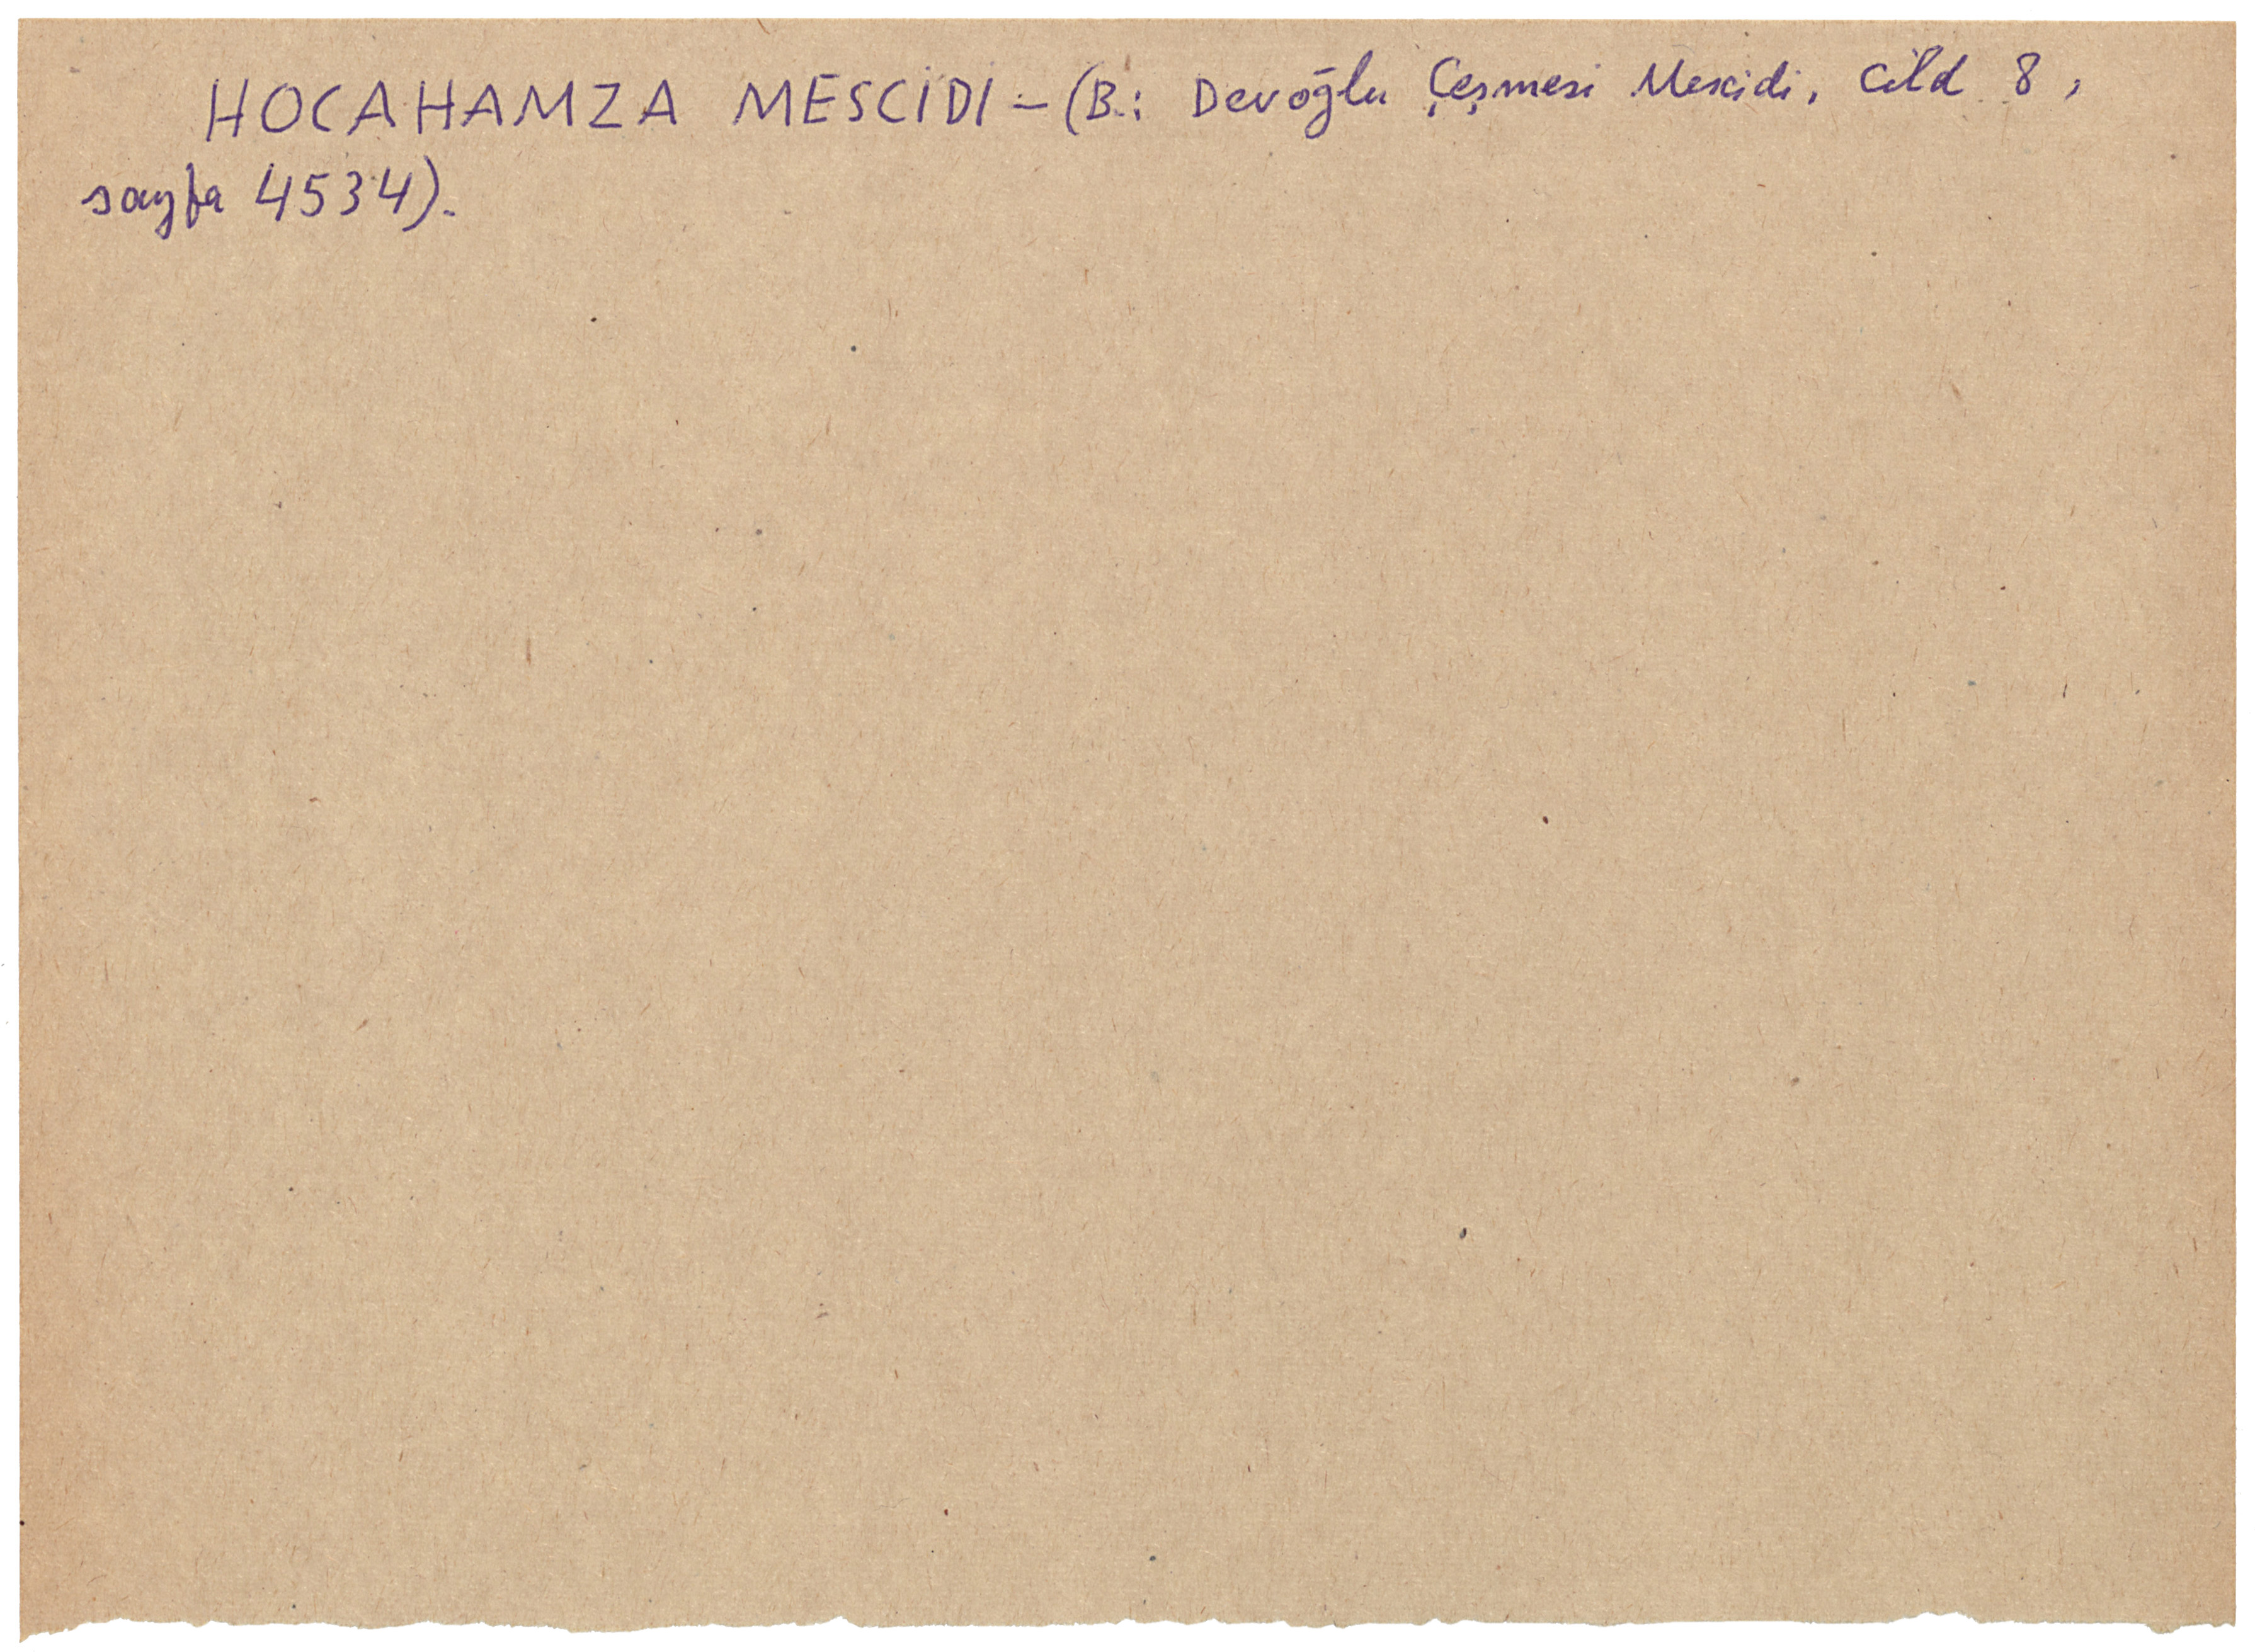 HOCAHAMZA MESCİDİ – (B.: Devoğlu Çeşmesi Mescidi, Cild 8,
sayfa 4534).